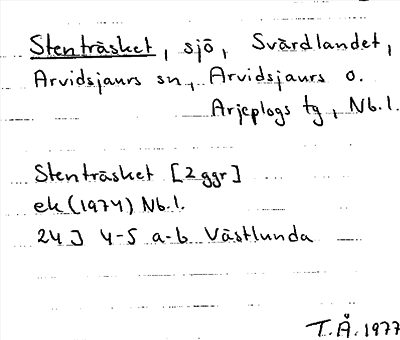 Stenträsket, sjö, Svärdlandet,
Arvidsjaurs sn, Arvidsjaurs o.
Arjeplogs tg, Nb.l.
Stenträsket [2 ggr]
ek (1974) Nb.l.
24 J 4-5 a-b Västlunda
T.Å. 1977